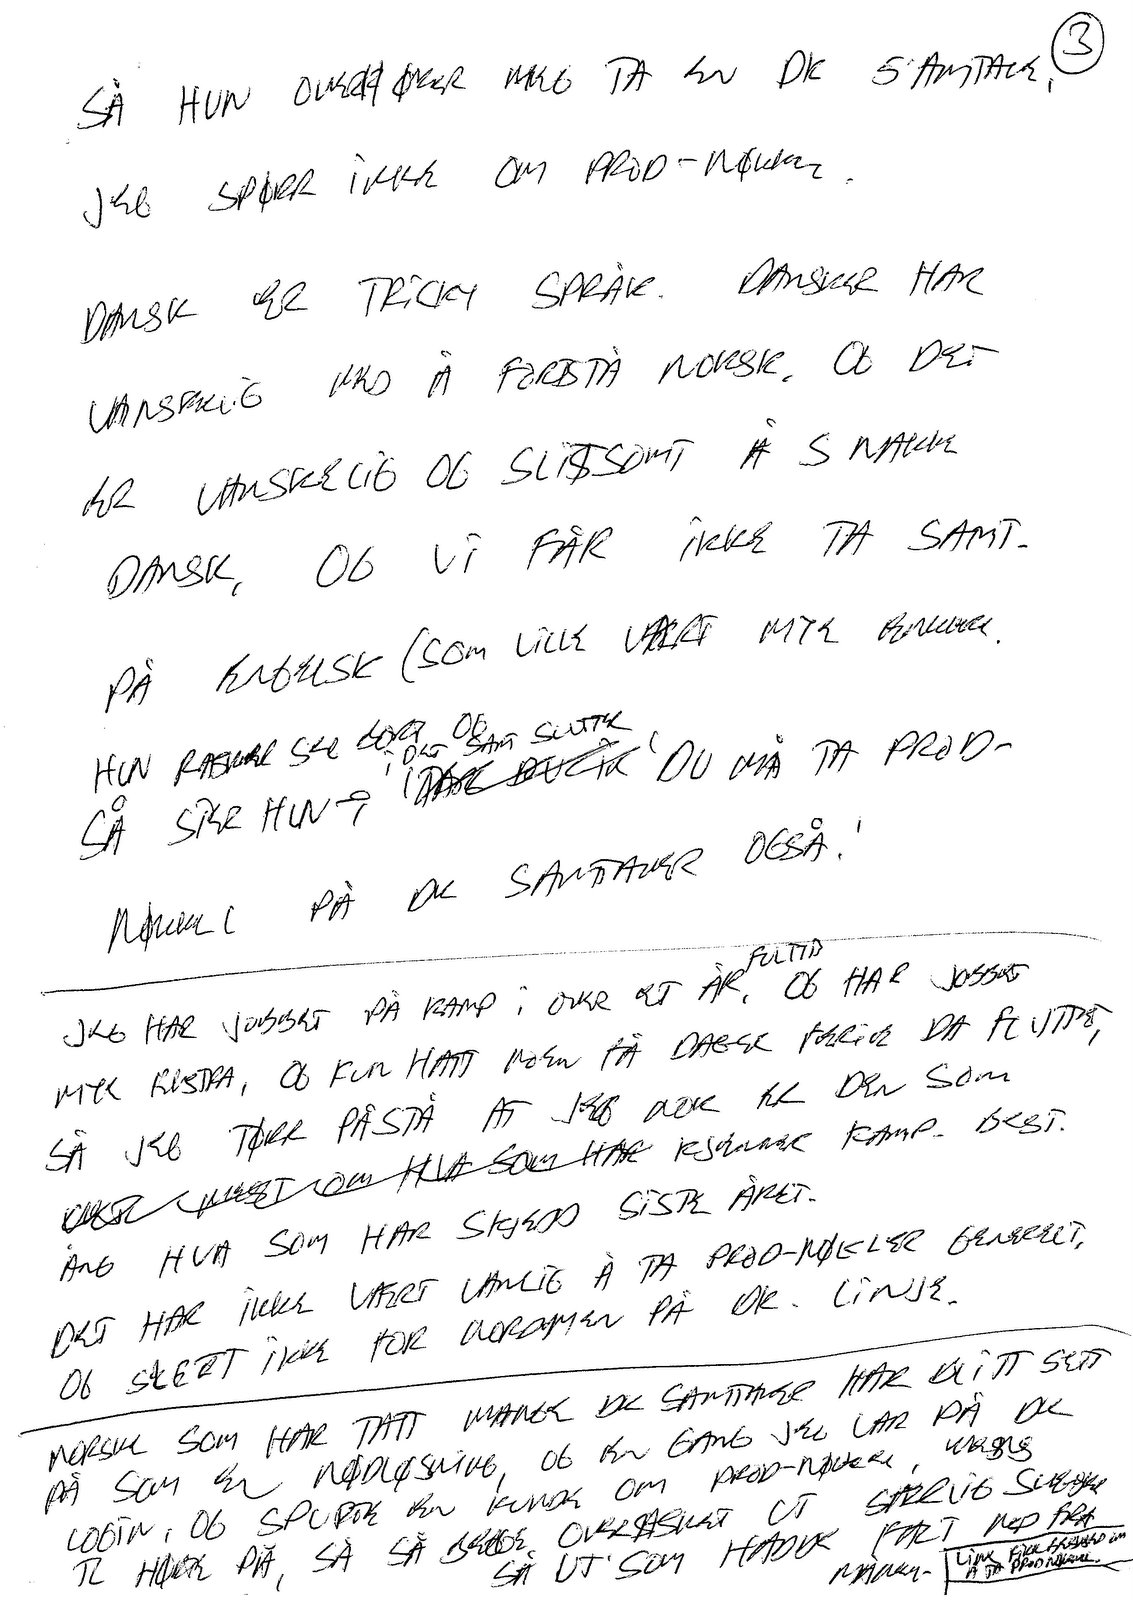 3
SÅ HUN OVERHØRER MEG TA EN DK SAMTALE,
JEG SPØRR IKKE OM PROD-NØKKEL.
DANSK ER TRICKY SPRÅK. DANSKER HAR
VANSKELIG MED Å FORSTÅ NORSK, OG DET
ER VANSKELIG OG SLITSOMT Å SNAKKE
DANSK, OG VI FÅR IKKE TA SAMT.
PÅ ENGELSK (SOM VILLE VÆRT MYE ENKLERE.
HUN RASKER SEG BORT OG
I DET SAMT SLUTTER
SÅ SIER HUN 'DU MÅ TA PROD-
NØKKEL PÅ DK SAMTALER OGSÅ.'
FULLTID
JEG HAR JOBBET PÅ KAMP I OVER ET ÅR, OG HAR JOBBET
MYE EKSTRA, OG KUN HATT NOEN FÅ DAGER FERIE DA FLYTTET,
SÅ JEG TØRR PÅSTÅ AT JEG NOK ER DEN SOM
MEST OM HVA SOM HAR KJENNER KAMP. BEST.
ANG HVA SOM HAR SKJEDD SISTE ÅRET.
DET HAR IKKE VÆRT VANLIG Å TA PROD-NØKLER GENERELT,
OG SLETT IKKE FOR NORDMEN PÅ DK. LINJE.
NORSKE SOM HAR TATT MANGE DK SAMTALER HAR BLITT SETT
PÅ SOM EN NØDLØSNING, OG EN GANG JEG VAR PÅ DK
LOGIN, OG SPURTE EN KUNDE OM PROD-NØKKEL,
HØRE PÅ, SÅ SÅ OVERRASKET UT
SÅ UT SOM HADDE FALT NED FRA
MÅNEN.